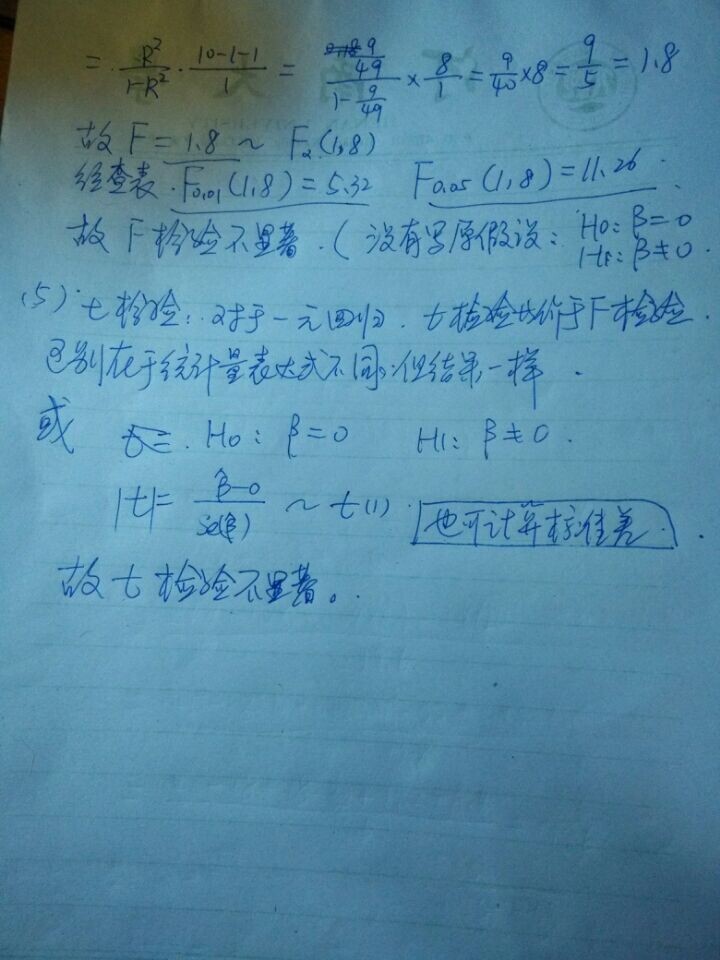 = R²/(1-R²) · (10-1-1)/1 = (9/49)/(1-9/49) × 8/1 = 9/40 × 8 = 9/5 = 1.8
故 F = 1.8 ~ F₂(1,8)
经查表. F₀.₀₁(1,8) = 5.32 F₀.₀₅(1,8) = 11.26.
故 F检验不显著. (没有写原假设: H0: β=0
H1: β≠0.
(5) t检验: 对于一元回归. t检验等价于F检验.
区别在于统计量表达式不同, 但结果一样.
或 H0: β=0 H1: β≠0.
|t| = (β̂-0)/se(β̂) ~ t(1). 也可计算标准差.
故 t 检验不显著。